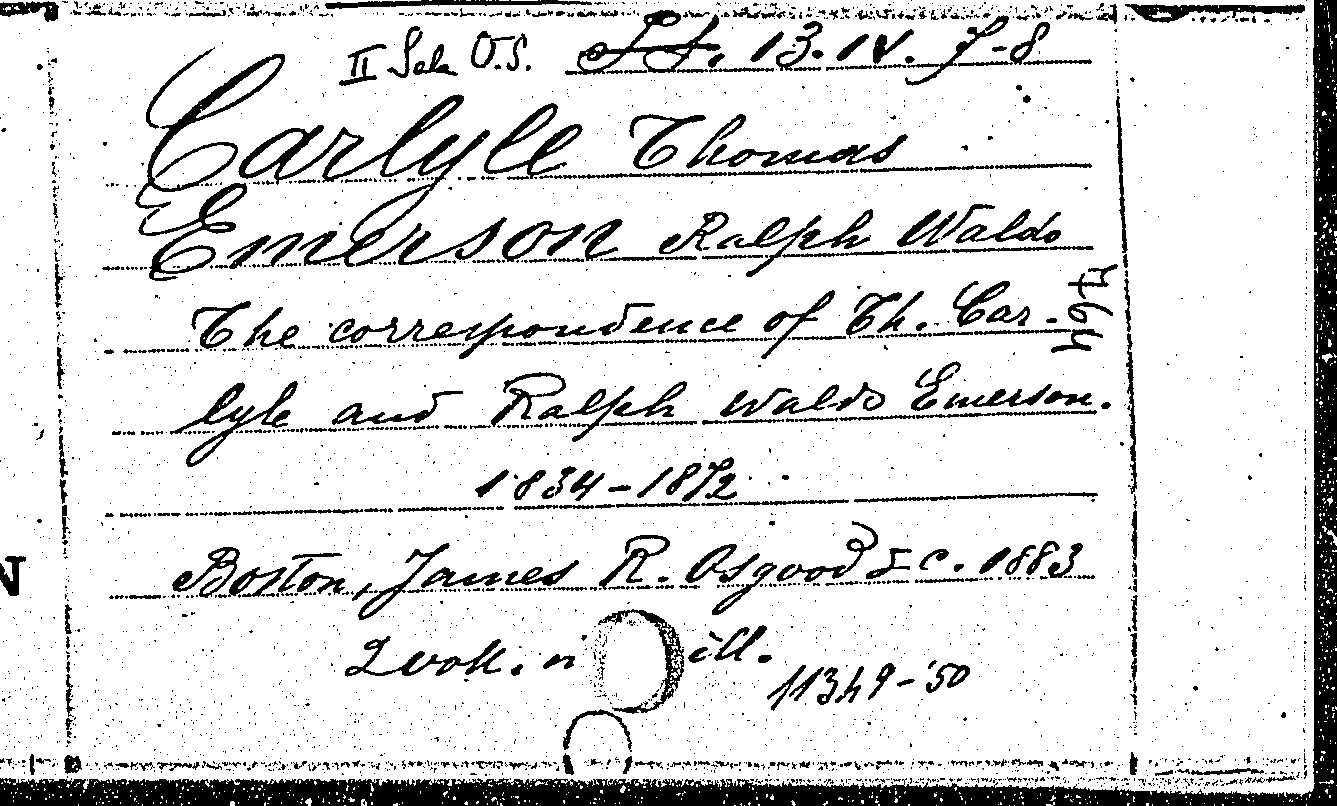 II Sala O.S. 13. IV. 7-8
Carlyle Thomas
Emerson Ralph Waldo
The correspondence of Th. Car-
lyle and Ralph Waldo Emerson.
1834-1872
Boston, James R. Osgood & C. 1883
2 voll. ill.
11349-'50
N